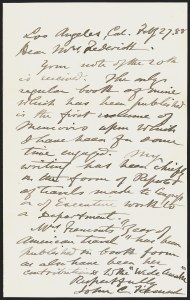 Los Angeles, Cal. Feby 27. 88
Dear Mrs. Frederick
Your note of the 20th
is received. The only
regular book of mine
which has been published
is the first volume of
Memoirs upon which
I have been for some
time engaged. My
writing has been chiefly
in the form of Reports
of travels made to Congress
or of Executive work to
a Department.
Mrs. Fremont's "Year of
American Travel" has been
published in book form
as also have been her
contributions to the "Wide Awake"
Respectfully
John C. Fremont